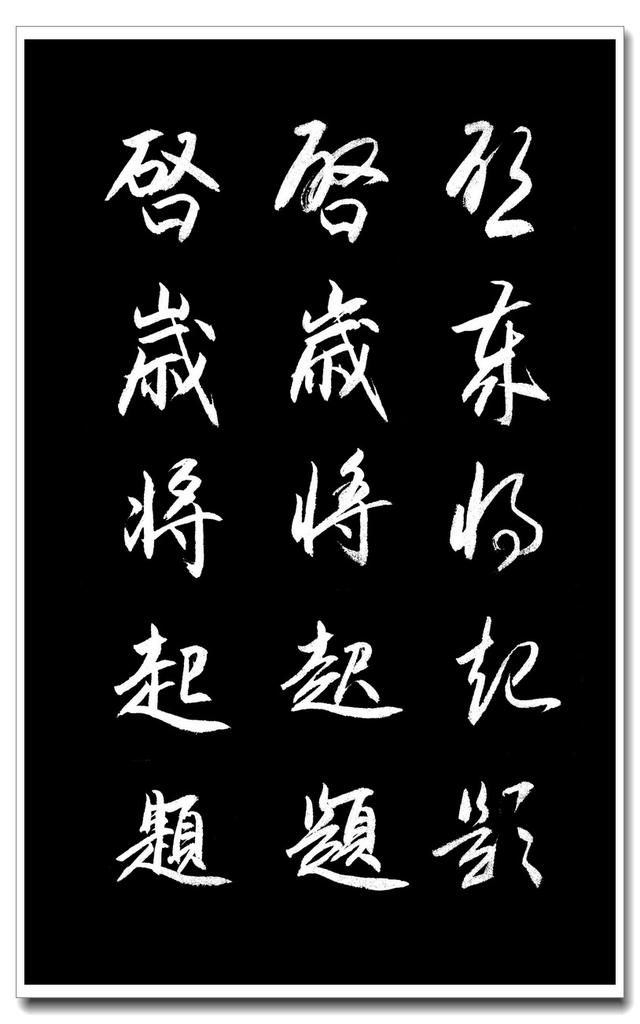 啓歲將起題
啓歲將起題
啓歲將起題